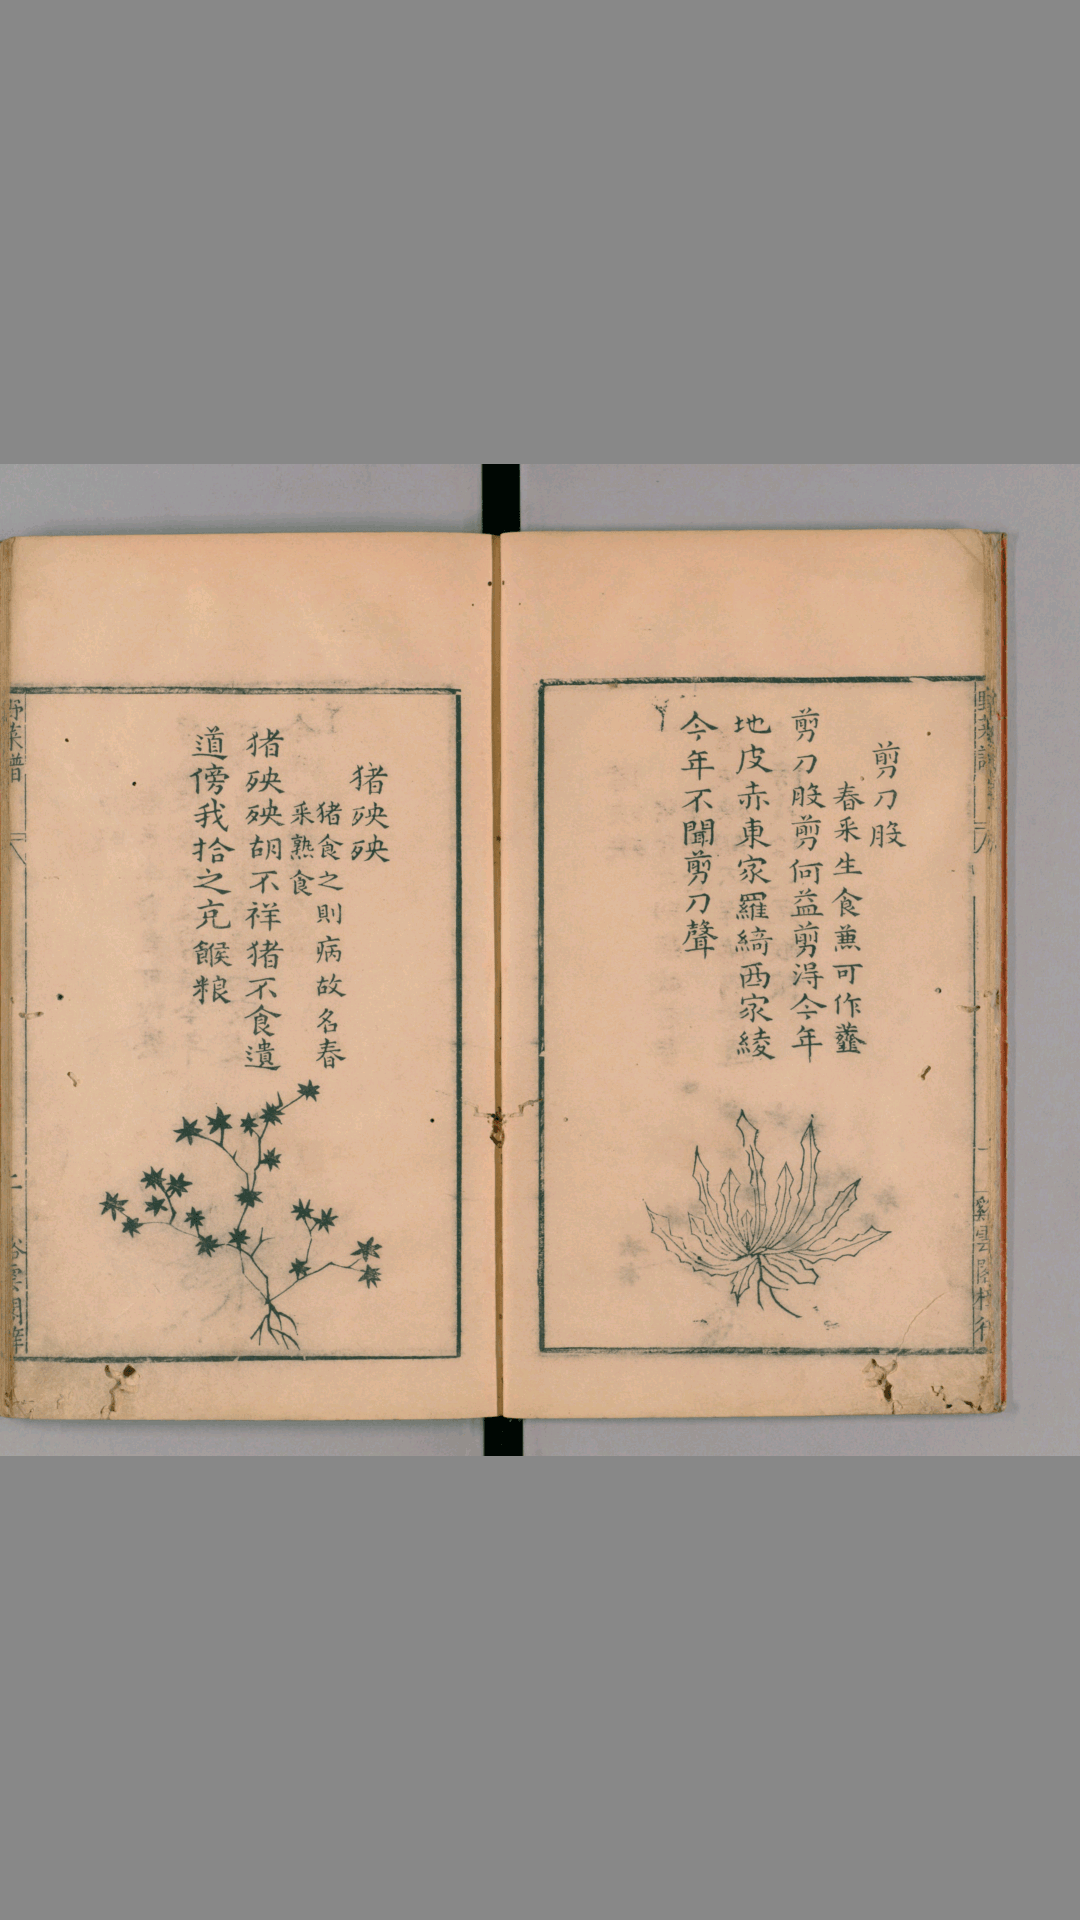 剪刀股
春采生食蒹可作虀
剪刀股剪何益剪得今年
地皮赤東家羅綺西家綾
今年不聞剪刀聲
猪殃殃
猪食之則病故名春
采熟食
猪殃殃胡不祥猪不食遺
道傍我拾之充餱粮
野菜譜